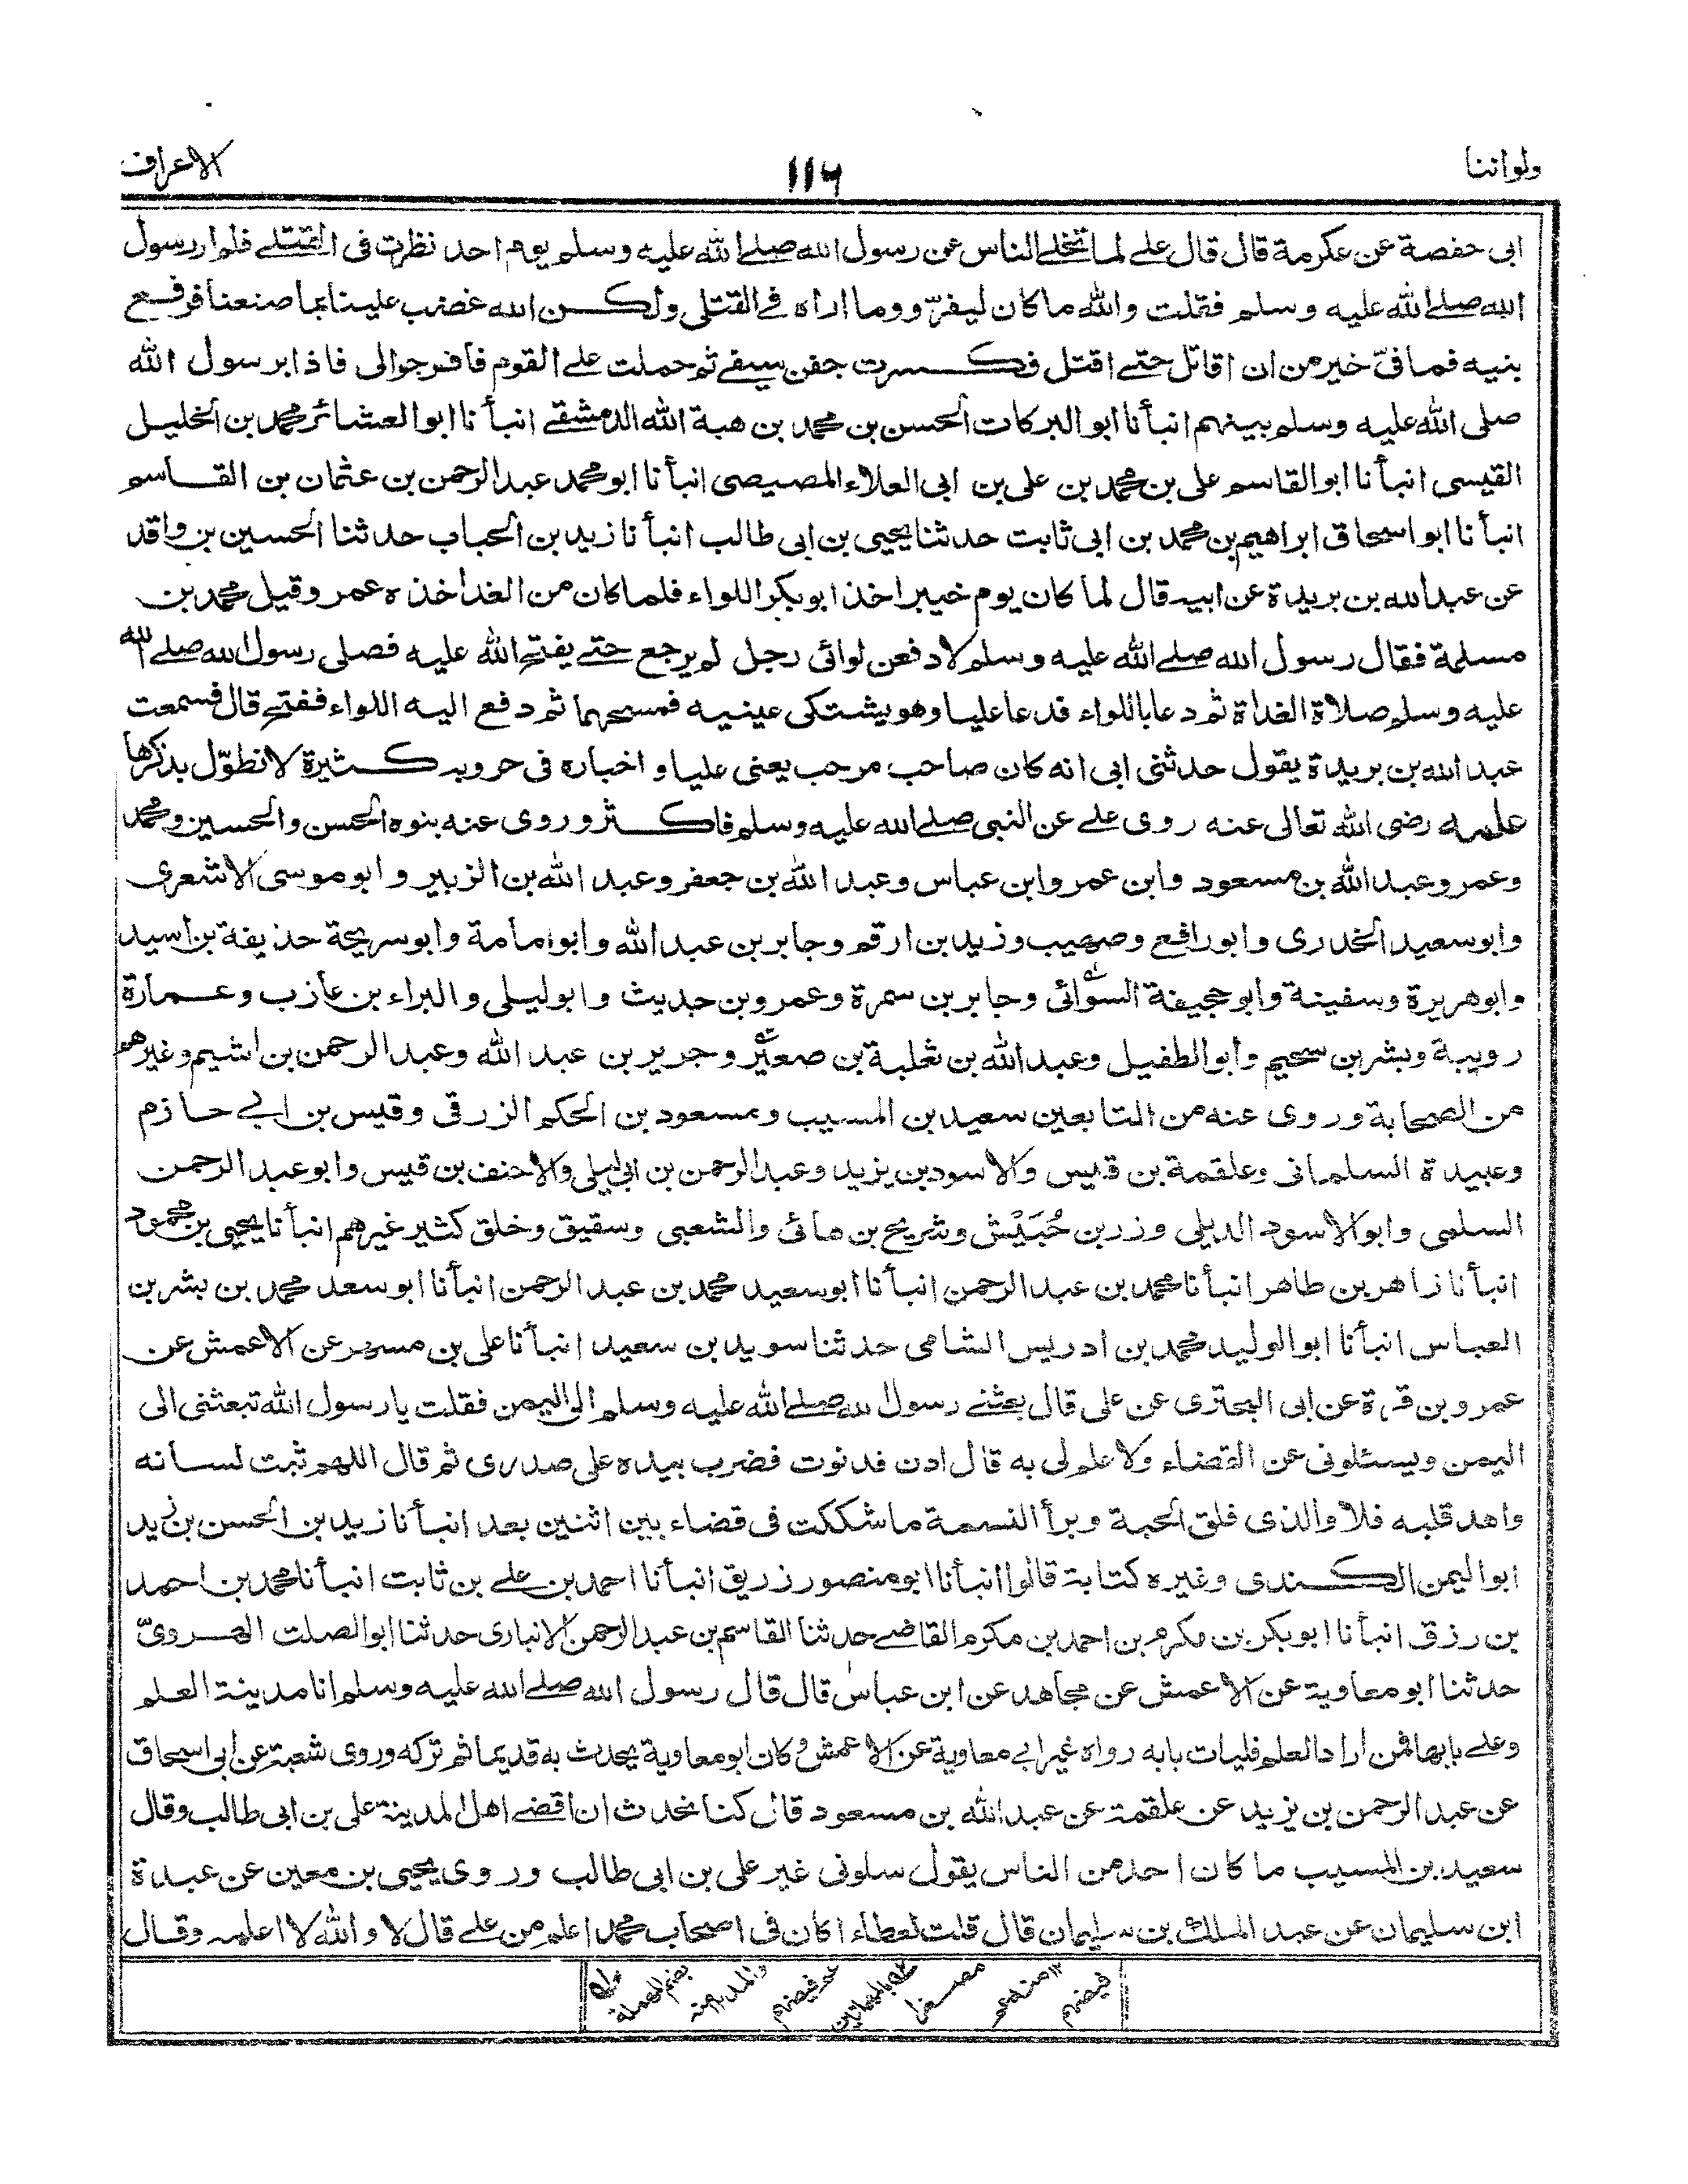 ولواننا
١١٦
الاعراف
ابى حفصة عن عكرمة قال قال على لما تخلى الناس عن رسول الله صلى الله عليه وسلم يوم احد نظرت فى القتلى فلم ار رسول
الله صلى الله عليه وسلم فقلت والله ما كان ليفرّ وما اراه فى القتلى ولكن الله غضب علينا بما صنعنا فرفع
بنيه فما فىّ خير من ان اقاتل حتى اقتل فكسرت جفن سيفى ثم حملت على القوم فافرجوا لى فاذا برسول الله
صلى الله عليه وسلم بينهم انبأنا ابو البركات الحسن بن محمد بن هبة الله الدمشقى انبأنا ابو العشائر محمد بن الخليل
القيسى انبأنا ابو القاسم على بن محمد بن على بن ابى العلاء المصيصى انبأنا ابو محمد عبد الرحمن بن عثمان بن القاسم
انبأنا ابو اسحاق ابراهيم بن محمد بن ابى ثابت حدثنا يحيى بن ابى طالب انبأنا زيد بن الحباب حدثنا الحسين بن واقد
عن عبد الله بن بريدة عن ابيه قال لما كان يوم خيبر اخذ ابو بكر اللواء فلما كان من الغد اخذه عمر وقيل محمد بن
مسلمة فقال رسول الله صلى الله عليه وسلم لادفعن لوائى رجل لم يرجع حتى يفتح الله عليه فصلى رسول الله صلى الله
عليه وسلم صلاة الغداة ثم دعا باللواء فدعا عليا وهو يشتكى عينيه فمسحهما ثم دفع اليه اللواء ففتح قال فسمعت
عبد الله بن بريدة يقول حدثنى ابى انه كان صاحب مرحب يعنى عليا واخباره فى حروبه كثيرة لا نطوّل بذكرها
علمه رضى الله تعالى عنه روى على عن النبى صلى الله عليه وسلم فاكثر وروى عنه بنوه الحسن والحسين ومحمد
وعمر وعبد الله بن مسعود وابن عمر وابن عباس وعبد الله بن جعفر وعبد الله بن الزبير وابو موسى الاشعرى
وابو سعيد الخدرى وابو رافع وصهيب وزيد بن ارقم وجابر بن عبد الله وابو امامة وابو سريحة حذيفة بن اسيد
وابو هريرة وسفينة وابو جحيفة السوائى وجابر بن سمرة وعمرو بن حديث وابو ليلى والبراء بن عازب وعمارة
رويبة وبشر بن سحيم وابو الطفيل وعبد الله بن ثعلبة بن صعير وجرير بن عبد الله وعبد الرحمن بن اشيم وغيرهم
من الصحابة وروى عنه من التابعين سعيد بن المسيب ومسعود بن الحكم الزرقى وقيس بن ابى حازم
وعبيدة السلمانى وعلقمة بن قيس والاسود بن يزيد وعبد الرحمن بن ابى ليلى والاحنف بن قيس وابو عبد الرحمن
السلمى وابو الاسود الديلى وزر بن حُبَيْش وشريح بن هانئ والشعبى وسقيق وخلق كثير غيرهم انبأنا يحيى بن محمود
انبأنا زاهر بن طاهر انبأنا محمد بن عبد الرحمن انبأنا ابو سعيد محمد بن عبد الرحمن انبأنا ابو سعد محمد بن بشر بن
العباس انبأنا ابو الوليد محمد بن ادريس الشامى حدثنا سويد بن سعيد انبأنا على بن مسهر عن الاعمش عن
عمرو بن قرة عن ابى البحترى عن على قال بعثنى رسول الله صلى الله عليه وسلم الى اليمن فقلت يا رسول الله تبعثنى الى
اليمن ويسئلونى عن القضاء ولا علم لى به قال ادن فدنوت فضرب بيده على صدرى ثم قال اللهم ثبت لسانه
واهد قلبه فلا والذى فلق الحبة وبرأ النسمة ما شككت فى قضاء بين اثنين بعد انبأنا زيد بن الحسن بن زيد
ابو اليمن الكندى وغيره كتابة قالوا انبأنا ابو منصور زريق انبأنا احمد بن على بن ثابت انبأنا محمد بن احمد
بن رزق انبأنا ابو بكر بن مكرم بن احمد بن مكرم القاضى حدثنا القاسم بن عبد الرحمن الانبارى حدثنا ابو الصلت الهروىّ
حدثنا ابو معاوية عن الاعمش عن مجاهد عن ابن عباس قال قال رسول الله صلى الله عليه وسلم انا مدينة العلم
وعلى بابها فمن اراد العلم فليات بابه رواه غير ابى معاوية عن الاعمش وكان ابو معاوية يحدث به قديما ثم تركه وروى شعبة عن ابى اسحاق
عن عبد الرحمن بن يزيد عن علقمة عن عبد الله بن مسعود قال كنا نحدث ان اقضى اهل المدينة على بن ابى طالب وقال
سعيد بن المسيب ما كان احد من الناس يقول سلونى غير على بن ابى طالب وروى يحيى بن معين عن عبدة
ابن سليمان عن عبد الملك بن سليمان قال قلت لعطاء اكان فى اصحاب محمد اعلم من على قال لا والله لا اعلمه وقال
بضم المهملة